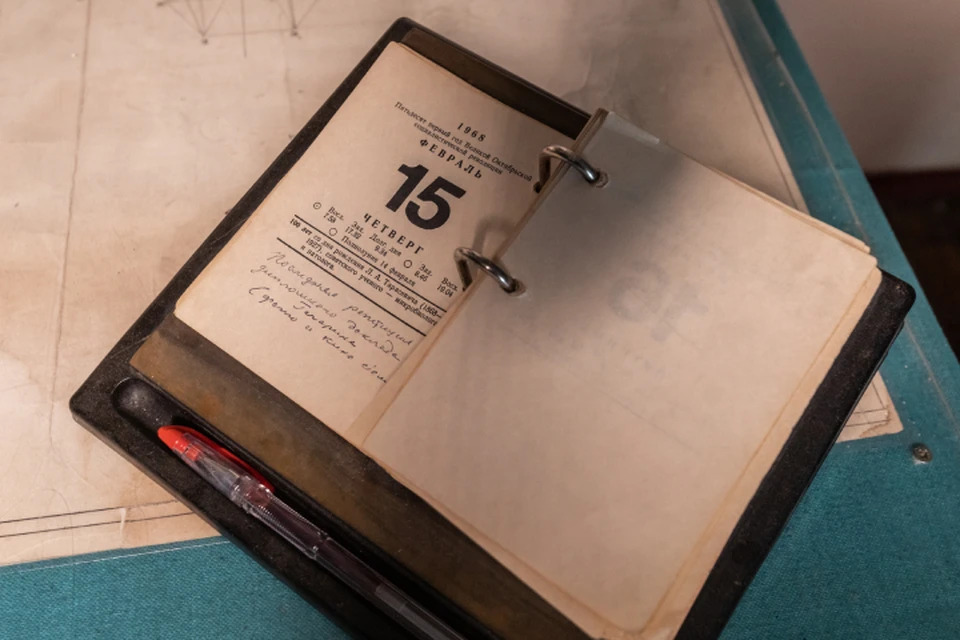 1968
Пятьдесят первый год Великой Октябрьской
социалистической революции
ФЕВРАЛЬ
15
ЧЕТВЕРГ
Восх. Зах. Долг. дня Зах. Восх.
7.58 17.32 9.34 8.45 19.04
Полнолуние 14 февраля
100 лет со дня рождения Л. А. Тарасевича (1868—
1927), советского ученого — микробиолога
и патолога.
Последняя репетиция
дипломного доклада
Гагарина
(фото и кино